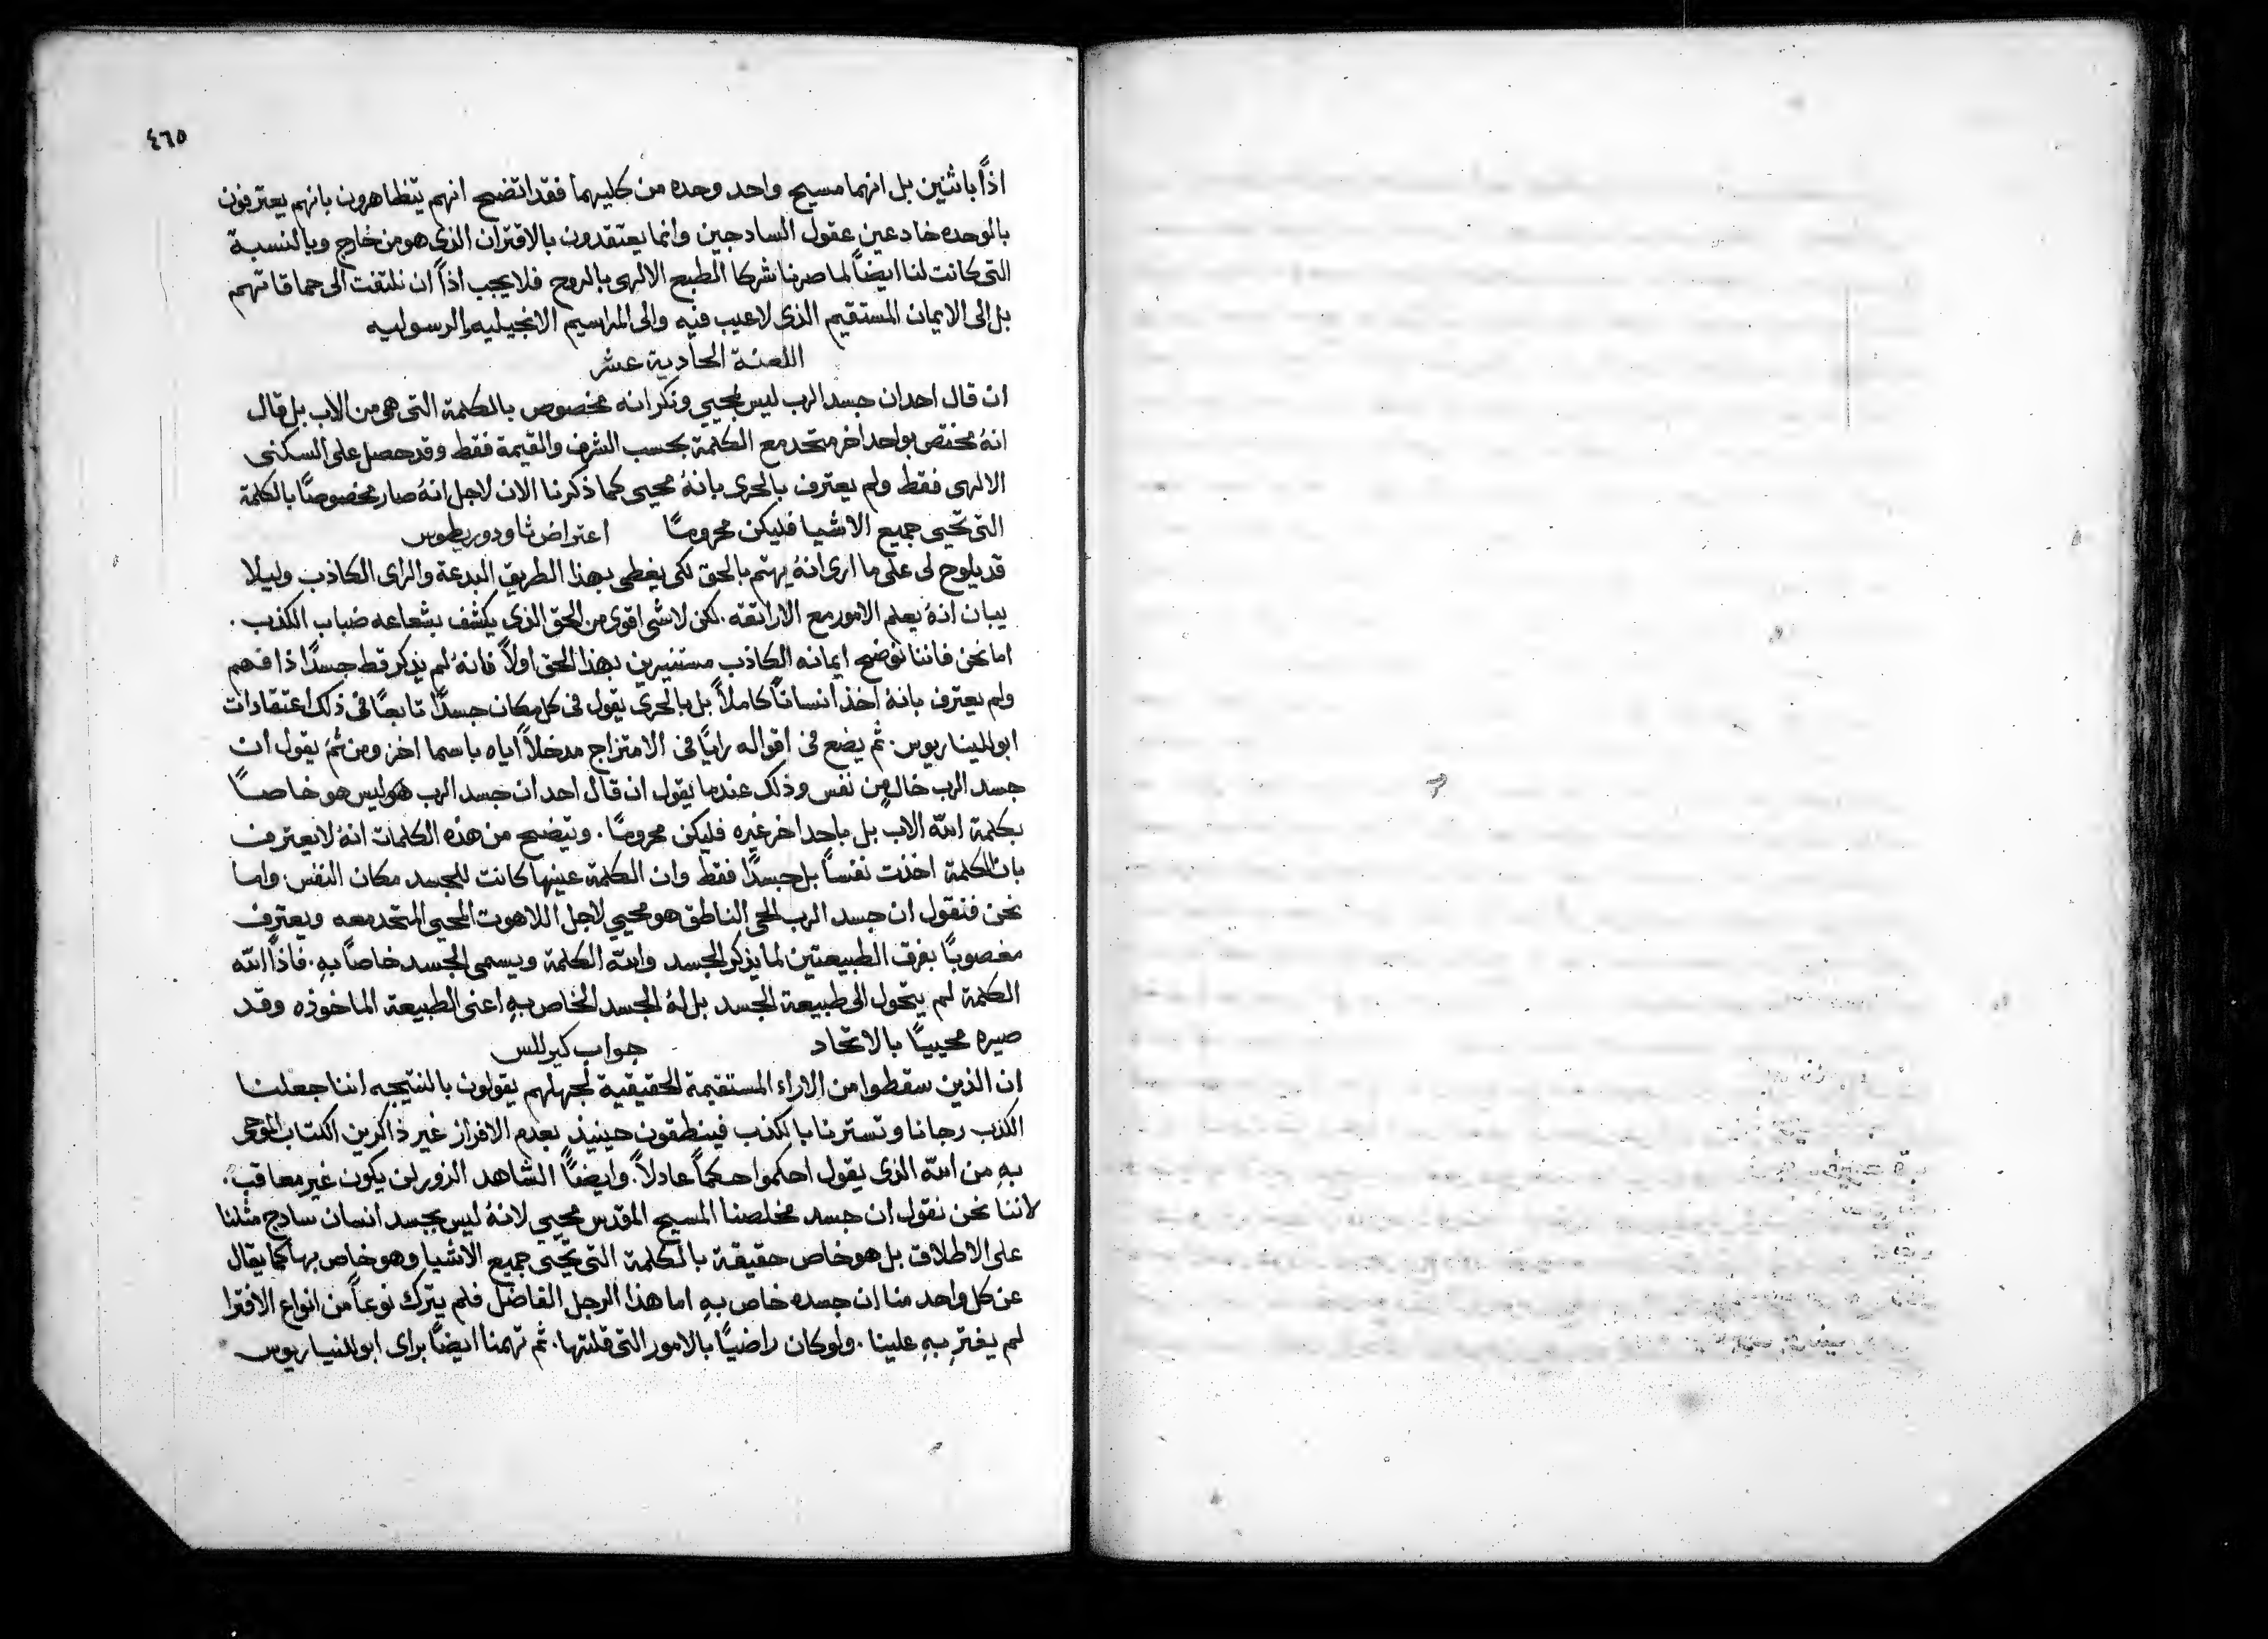 ٤٦٥
اذًا باثنين بل انهما مسيح واحد وحده من كليهما فقد اتضح انهم يتظاهرون بانهم يعترفون
بالوحده خادعين عقول السادجين وانما يعتقدون بالاقتران الذى هو من خارج وبالنسبة
التى كانت لنا ايضاً لما صرنا شركا الطبع الالهى بالروح فلا يجب اذاً ان نلتفت الى حماقاتهم
بل الى الايمان المستقيم الذى لا عيب فيه والى المراسيم الانجيليه والرسوليه
اللعنة الحادية عشر
ان قال احد ان جسد الرب ليس بمحيي ونكر انه مخصوص بالكلمة التى هى من الاب بل قال
انهُ مختص بواحد اخر متحد مع الكلمة بحسب الشرف والقيمة فقط وقد حصل على السكنى
الالهى فقط ولم يعترف بالحرى بانهُ محيى كما ذكرنا الان لاجل انهُ صار مخصوصًا بالكلمة
التى تحيى جميع الاشيا فليكن محرومًا اعتراض ثاودوريطوس
قد يلوح لى على ما ارى انهُ يهتم بالحق لكى يغطى بهذا الطريق البدعة والراى الكاذب وليلا
يبان انهُ يعلم الامور مع الاراتقه. لكن لا شى اقوى من الحق الذى يكشف بشعاعه ضباب الكذب.
اما نحن فاننا نوضح ايمانه الكاذب مستنيرين بهذا الحق اولاً فانهُ لم يذكر قط جسدًا ذا فهم
ولم يعترف بانهُ اخذ انسانًا كاملاً بل بالحرى يقول فى كل مكان جسدًا تابعًا فى ذلك اعتقادات
ابولليناريوس. ثم يضع فى اقواله رايًا فى الامتزاج مدخلاً اياه باسما اخر ومن ثمَّ يقول ان
جسد الرب خالٍ من نفس وذلك عندما يقول ان قال احد ان جسد الرب هو ليس هو خاصًا
بكلمة الله الاب بل باحد اخر غيره فليكن محرومًا. ويتضح من هذه الكلمات انهُ لا يعترف
بان الكلمة اخذت نفساً بل جسدًا فقط وان الكلمة عينها كانت للجسد مكان النفس. واما
نحن فنقول ان جسد الرب الحى الناطق هو محيي لاجل اللاهوت المحيى المتحد معه ويعترف
مغصوبًا بفرق الطبيعتين لما يذكر الجسد والله الكلمة ويسمى الجسد خاصاً بهِ. فاذًا الله
الكلمة لم يتحول الى طبيعة الجسد بل لهُ الجسد الخاص بهِ اعنى الطبيعة الماخوذه وقد
صيره محييًا بالاتحاد جواب كيرللس
ان الذين سقطوا من الاراء المستقيمة الحقيقية لجهلهم يقولون بالنتيجه اننا جعلنا
الكذب رجانا وتسترنا بالكذب فينطقون حينيذٍ بعدم الافراز غير ذاكرين الكتاب الموحى
بهِ من الله الذى يقول احكموا حكماً عادلاً. وايضاً الشاهد الزور لن يكون غير معاقب.
لاننا نحن نقول ان جسد مخلصنا المسيح المقدس محيي لانهُ ليس بجسد انسان سادج مثلنا
على الاطلاق بل هو خاص حقيقة بالكلمة التى تحيى جميع الاشيا وهو خاص بها كما يقال
عن كل واحد منا ان جسده خاص بهِ اما هذا الرجل الفاضل فلم يترك نوعاً من انواع الافترا
لم يفترِ بهِ علينا. ولو كان راضيًا بالامور التى قلتها. ثم تهمنا ايضًا براى ابولليناريوس